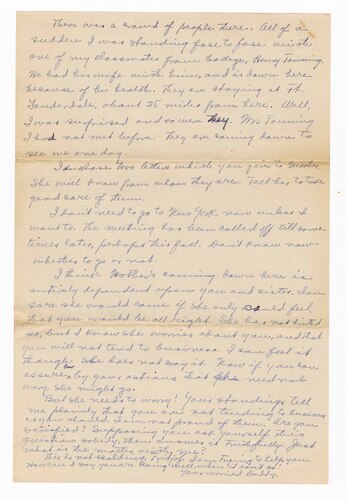 There was a crowd of people there. All of a
sudden I was standing face to face with
one of my classmates from college, Henry Tunning.
He had his wife with him, and is down here
because of her health. They are staying at Ft.
Lauderdale, about 25 miles from here. Well,
I was surprised and so were they. Mrs Tunning
I had not met before. They are coming down to
see me one day.
I enclose two letters which you give to Mother.
She will know from whom they are. Tell her to take
good care of them.
I dont need to go to New York now unless I
want to. The meeting has been called off till some
times later, perhaps this fall. Don't know now
whether to go or not.
I think Mother's coming down here is
entirely dependent upon you and sister. I am
sure she would come if she only could feel
that you would be all right. She has not hinted
so, but I know she worries about you, and that
you will not tend to business. I can feel it
though she does not say it. Now if you can
assure her by your actions that she need not
worry, she might go.
But she needs to worry! Your standings tell
me plainly that you are not tending to business
as you should. I am not proud of them. Are you
satisfied? Supposing you ask yourself this
question soberly, then answer it truthfully. Just
what is the matter with me?
This is not scolding, I am trying to help you.
How can I say you are doing well, when it isnt so?
Your worried Daddy.